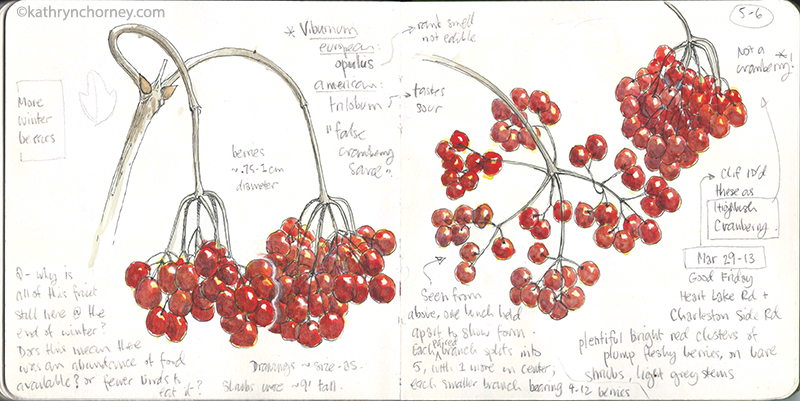 ©kathrynchorney.com
5-6
More
winter
berries
* Viburnum
european:
opulus
american:
trilobum
"false
cranberry
sauce"
rank smell
not edible
tastes
sour
berries
~.75-1 cm
diameter
Q- why is
all of this fruit
still here @ the
end of winter?
Does this mean there
was an abundance of food
available? or fewer birds to
eat it?
Drawings ~ size as.
Shrubs were ~9' tall.
Seen from
above, one bunch held
apart to show form.
Each paired branch splits into
5, with 2 more in center,
each smaller branch bearing 4-12 berries
Not a
cranberry *!
Clif ID'd
these as
Highbush
Cranberry.
Mar 29-13
Good Friday
Heart Lake Rd +
Charleston Side Rd
plentiful bright red clusters of
plump fleshy berries, on bare
shrubs, light grey stems